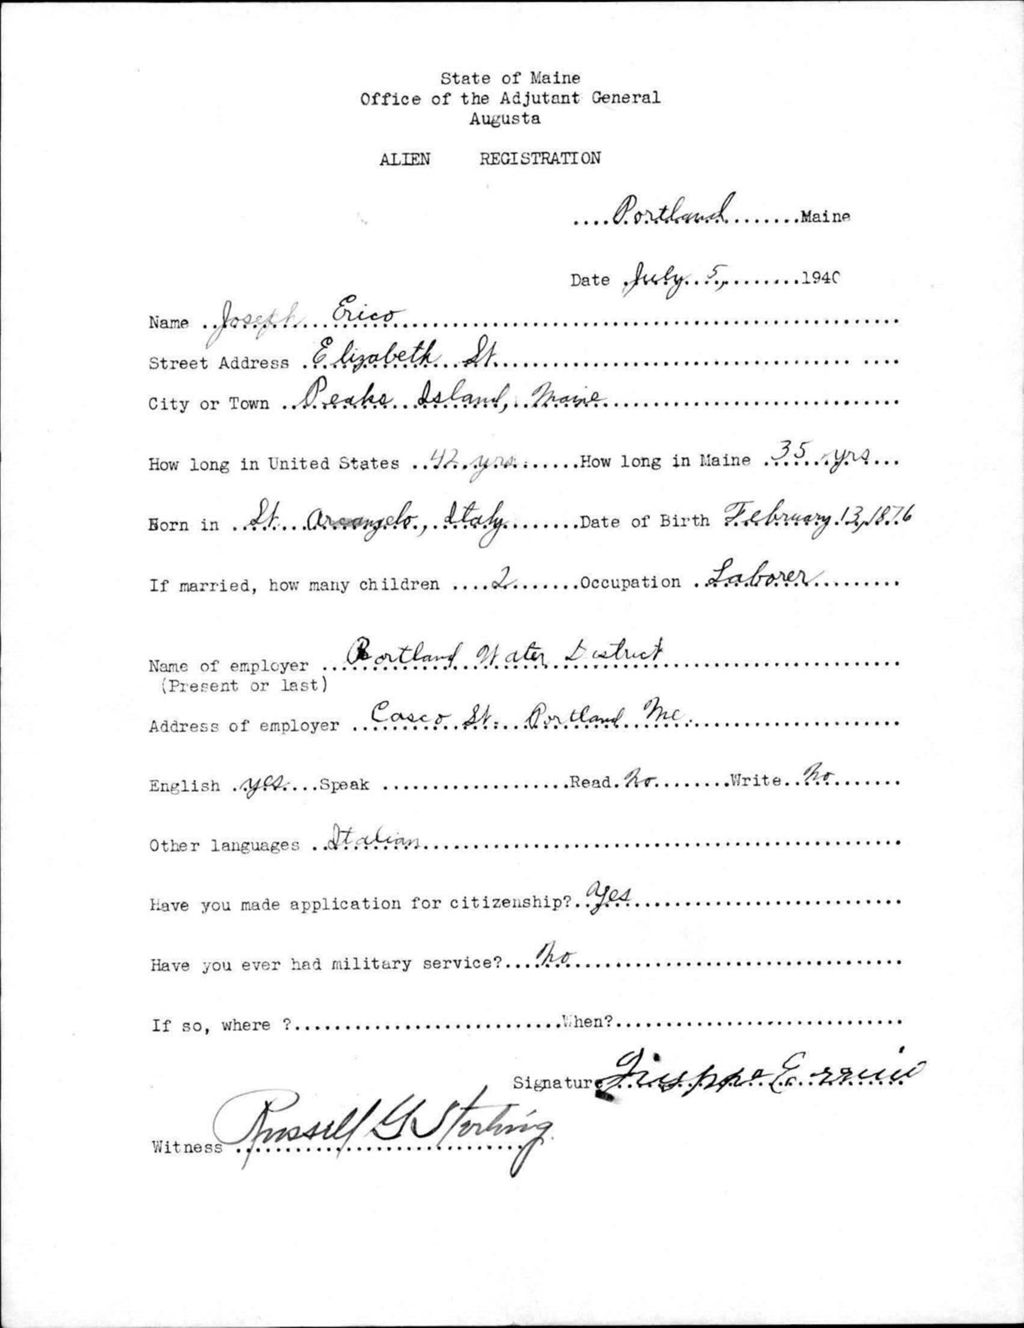 State of Maine
Office of the Adjutant General
Augusta
ALIEN REGISTRATION
....Portland........Maine
Date .July..5,.........1940
Name ..Joseph...Erico..................................................
Street Address .Elizabeth...St......................................... ....
City or Town ..Peaks..Island,..Maine...................................
How long in United States ..42.yrs.......How long in Maine .35..yrs...
Born in ..St...Arcangelo.,.Italy.........Date of Birth February.13,1876
If married, how many children ....2.......Occupation .Laborer.........
Name of employer ..Portland..Water..District...........................
(Present or last)
Address of employer ..Casco.St...Portland..Me..........................
English .yes....Speak ...................Read.No........Write..No.......
Other languages ..Italian...............................................
Have you made application for citizenship?..Yes...........................
Have you ever had military service?...No..................................
If so, where ?..........................When?.............................
Signature
Witness Russell G Sterling